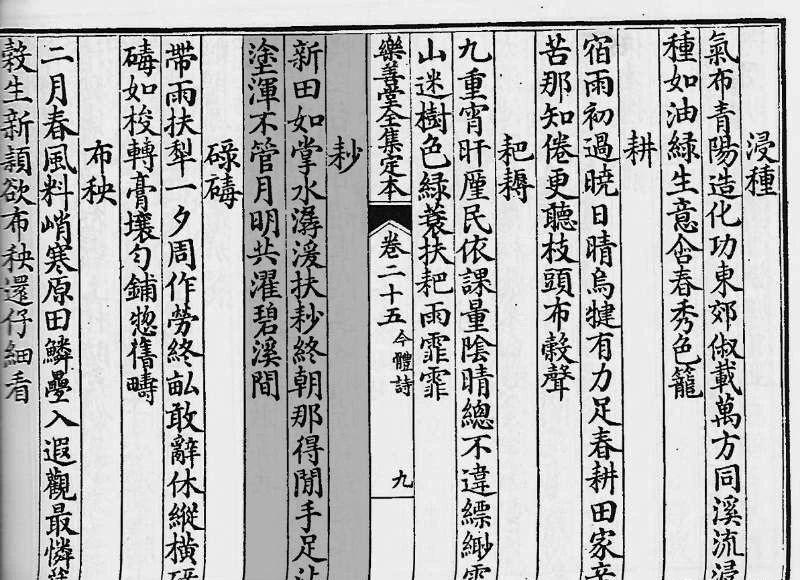 浸種
氣布青陽造化功東郊俶載萬方同溪流浸
種如油綠生意含春秀色籠
耕
宿雨初過曉日晴烏犍有力足春耕田家辛
苦那知倦更聽枝頭布穀聲
耙耨
九重宵旰厪民依課量陰晴總不違縹緲雲
山迷樹色綠蓑扶耙雨霏霏
樂善堂全集定本 卷二十五 今體詩 九
耖
新田如掌水潺湲扶耖終朝那得閒手足沾
塗渾不管月明共濯碧溪間
碌碡
帶雨扶犁一夕周作勞終畝敢辭休縱橫碌
碡如梭轉膏壤勻鋪惣舊疇
布秧
二月春風料峭寒原田鱗疊入遐觀最憐
穀生新穎欲布秧還仔細看